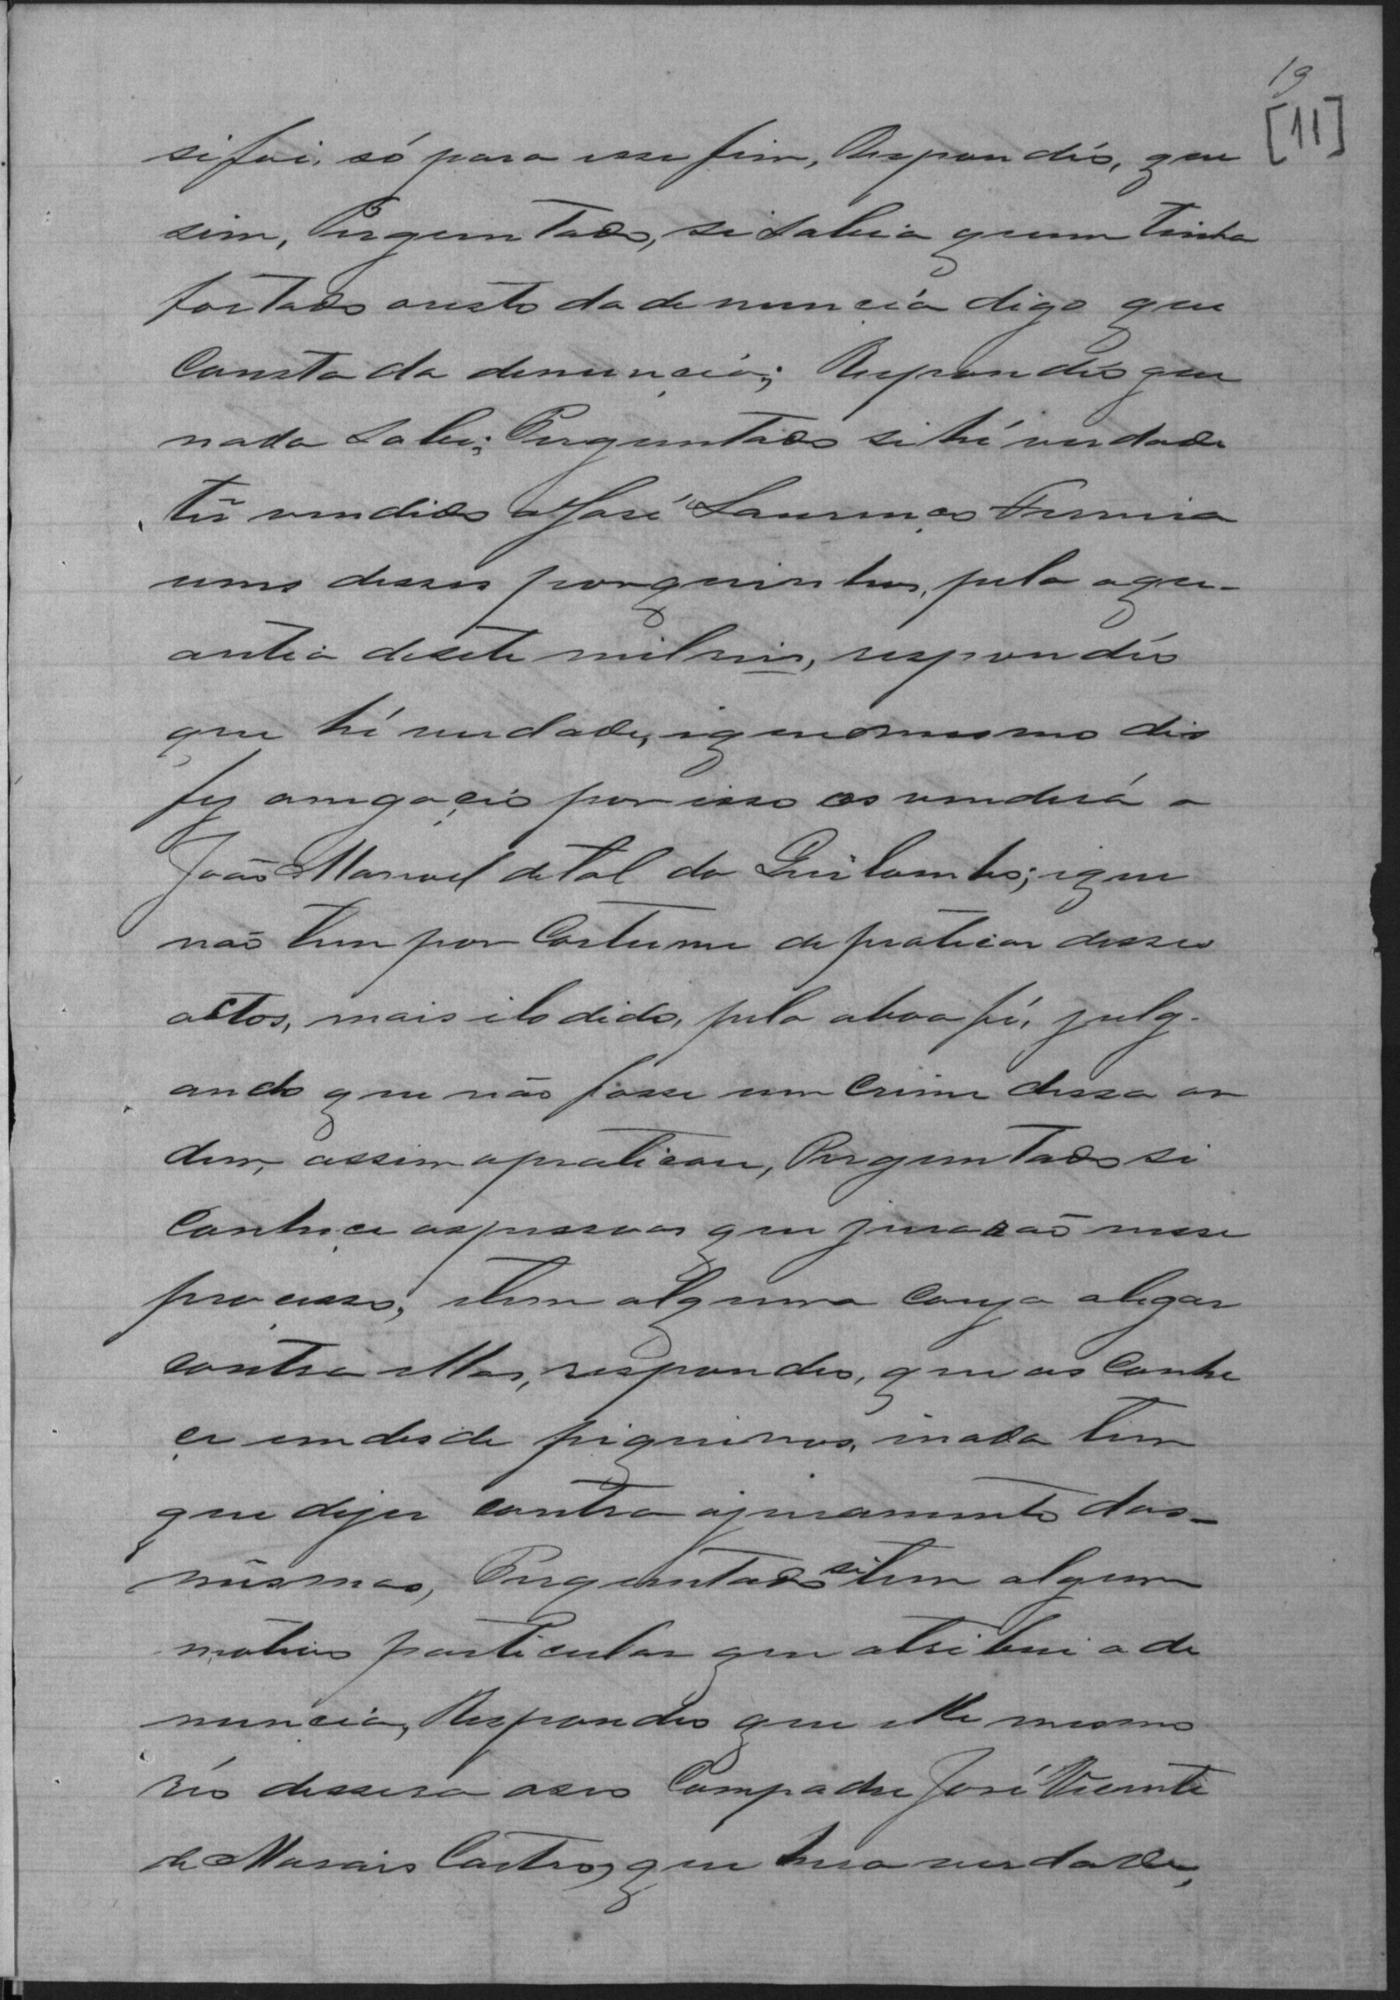 19
[11]
si foi, só para esse fim, Respondêo, que
sim, Perguntado, si sabia quem tinha
fortado oresto da denuncia digo que
Consta da denuncia; Respondêo que
nada Sabe; Perguntado si hé verdade
têr vendido a José Lourenço Ferreira
uns desses porquinhos, pela aqu-
antia desete milreis, respondêo
que hé verdade, iqueomesmo dis
fez onegocio por isso os venderá a
João Manoel detal do Quilombo; ique
não tem por Costume depraticar desses
actos, mais ilodido, pela aboa fé, julg-
ando que não fosse um Crime dessa or
dem, assim apraticou, Perguntado si
Conhece aspessoas que jurarão nesse
processo, etem alguma Couza alegar
contra ellas, respondeo, que as Conhe
ce emdesde piquenos, inada tem
que dizer contra ojuramento das-
mêsmas, Perguntado si tem algum
motivo particular que atribui a de
nuncia, Respondeo que elle mesmo
réo dissera aseo Compadre José Vicente
de Morais Castro, que hera verdade,